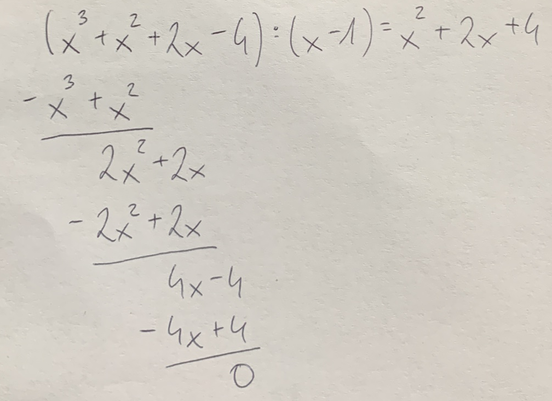 (x³ + x² + 2x - 4) : (x - 1) = x² + 2x + 4
- x³ + x²
2x² + 2x
- 2x² + 2x
4x - 4
- 4x + 4
0